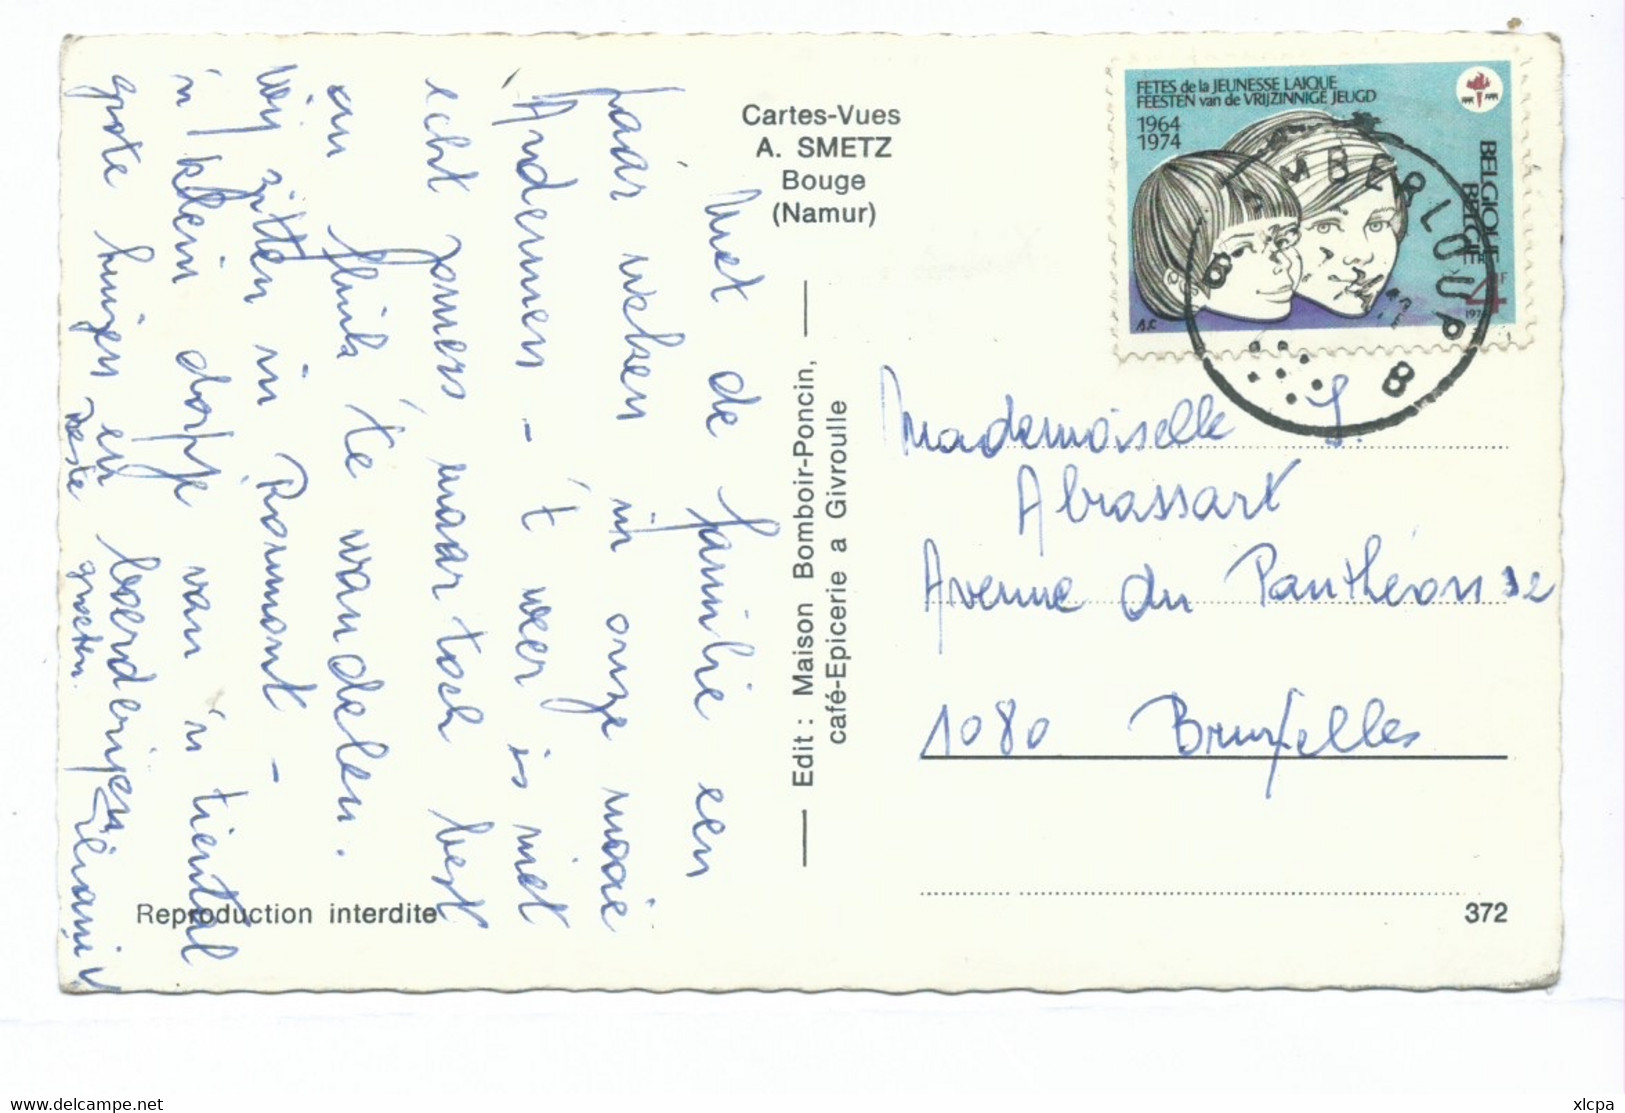 Cartes-Vues
A. SMETZ
Bouge
(Namur)
FETES de la JEUNESSE LAIQUE
FEESTEN van de VRIJZINNIGE JEUGD
1964
1974
BELGIQUE
BELGIE
4F
AMBERLOUP
B
B
Met de familie een
paar weken in onze mooie
Ardennen - 't weer is niet
echt zomers, maar toch best
om flink te wandelen.
Wij zitten in Ramont -
'n klein dorpje van 'n tiental
grote huizen en boerderijen
Beste groeten.
Edit : Maison Bomboir-Poncin,
café-Epicerie a Givroulle
Mademoiselle J.
Abrassart
Avenue du Panthéon 52
1080 Bruxelles
Reproduction interdite
372
www.delcampe.net
xlcpa